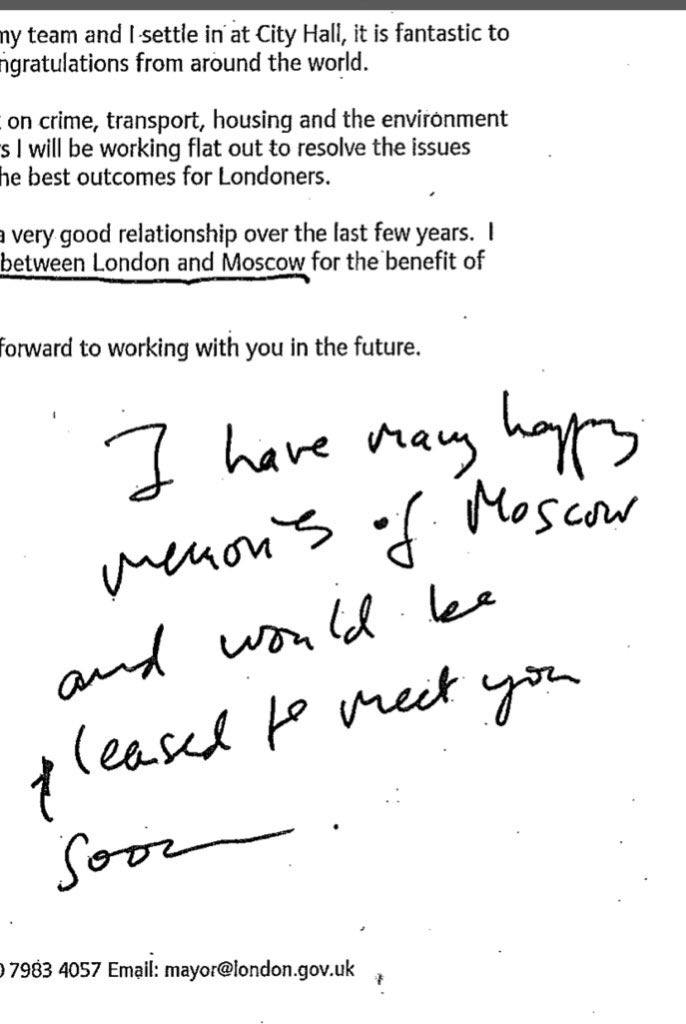 my team and I settle in at City Hall, it is fantastic to
ngratulations from around the world.
on crime, transport, housing and the environment
s I will be working flat out to resolve the issues
he best outcomes for Londoners.
a very good relationship over the last few years. I
between London and Moscow for the benefit of
forward to working with you in the future.
I have many happy
memories of Moscow
and would be
pleased to meet you
soon.
0 7983 4057 Email: mayor@london.gov.uk